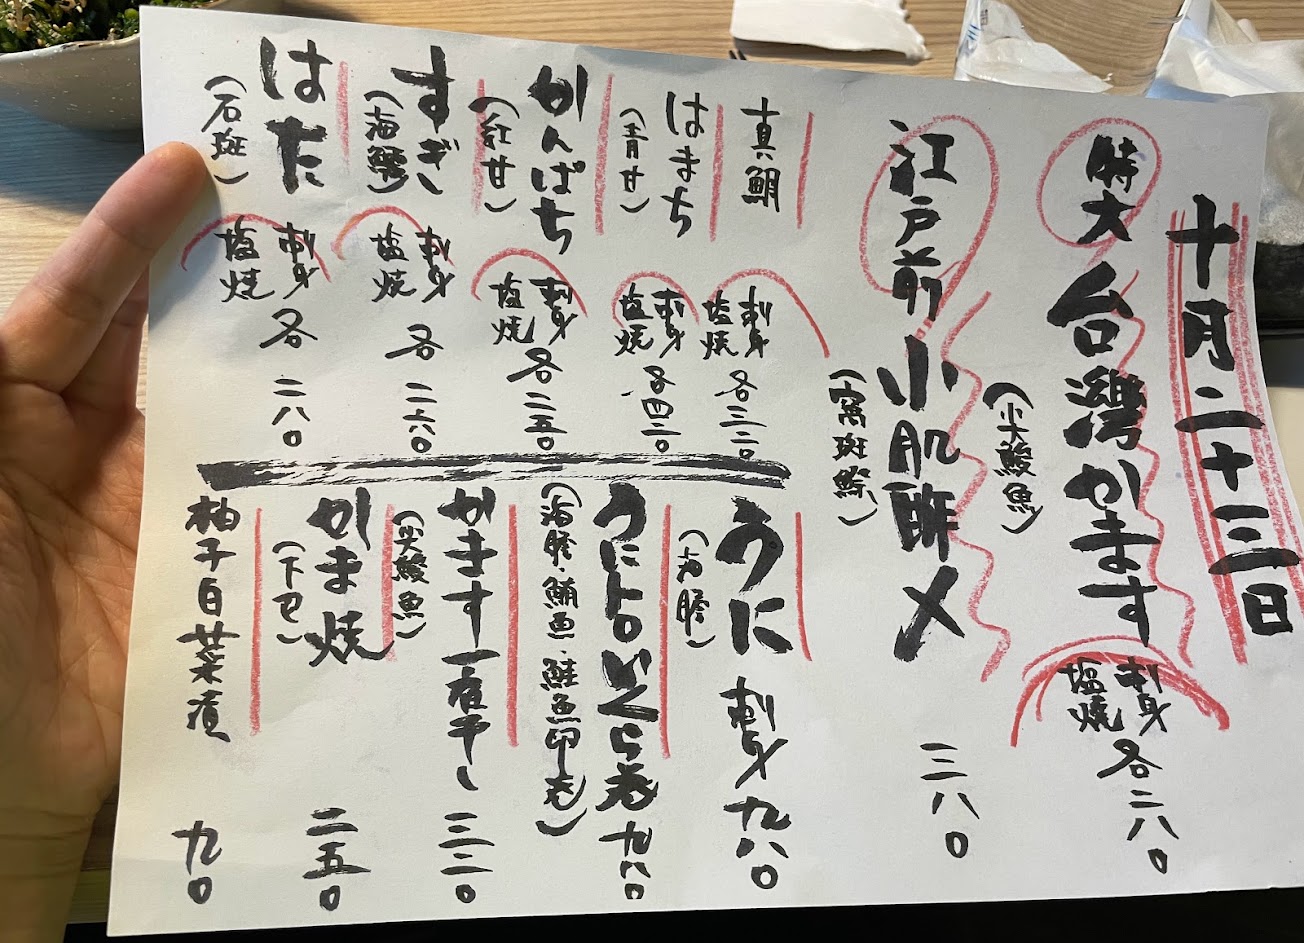 十月二十三日
特大 台灣かます 刺身 塩燒 各二八〇
(尖鮻魚)
江戸前 小肌酢〆 三八〇
(窩斑鰶)
真鯛 刺身 塩焼 各三二〇
はまち 刺身 塩焼 各四二〇
(青甘)
かんぱち 刺身 塩焼 各二五〇
(紅甘)
すぎ 刺身 塩焼 各二六〇
(海鱺)
はた 刺身 塩焼 各二八〇
(石斑)
うに 刺身 九八〇
(海膽)
うにトロいくら巻 九八〇
(海膽・鮪魚・鮭魚卵卷)
かます一夜干し 三二〇
(尖鮻魚)
かま焼 二五〇
(下巴)
柚子白菜漬 九〇